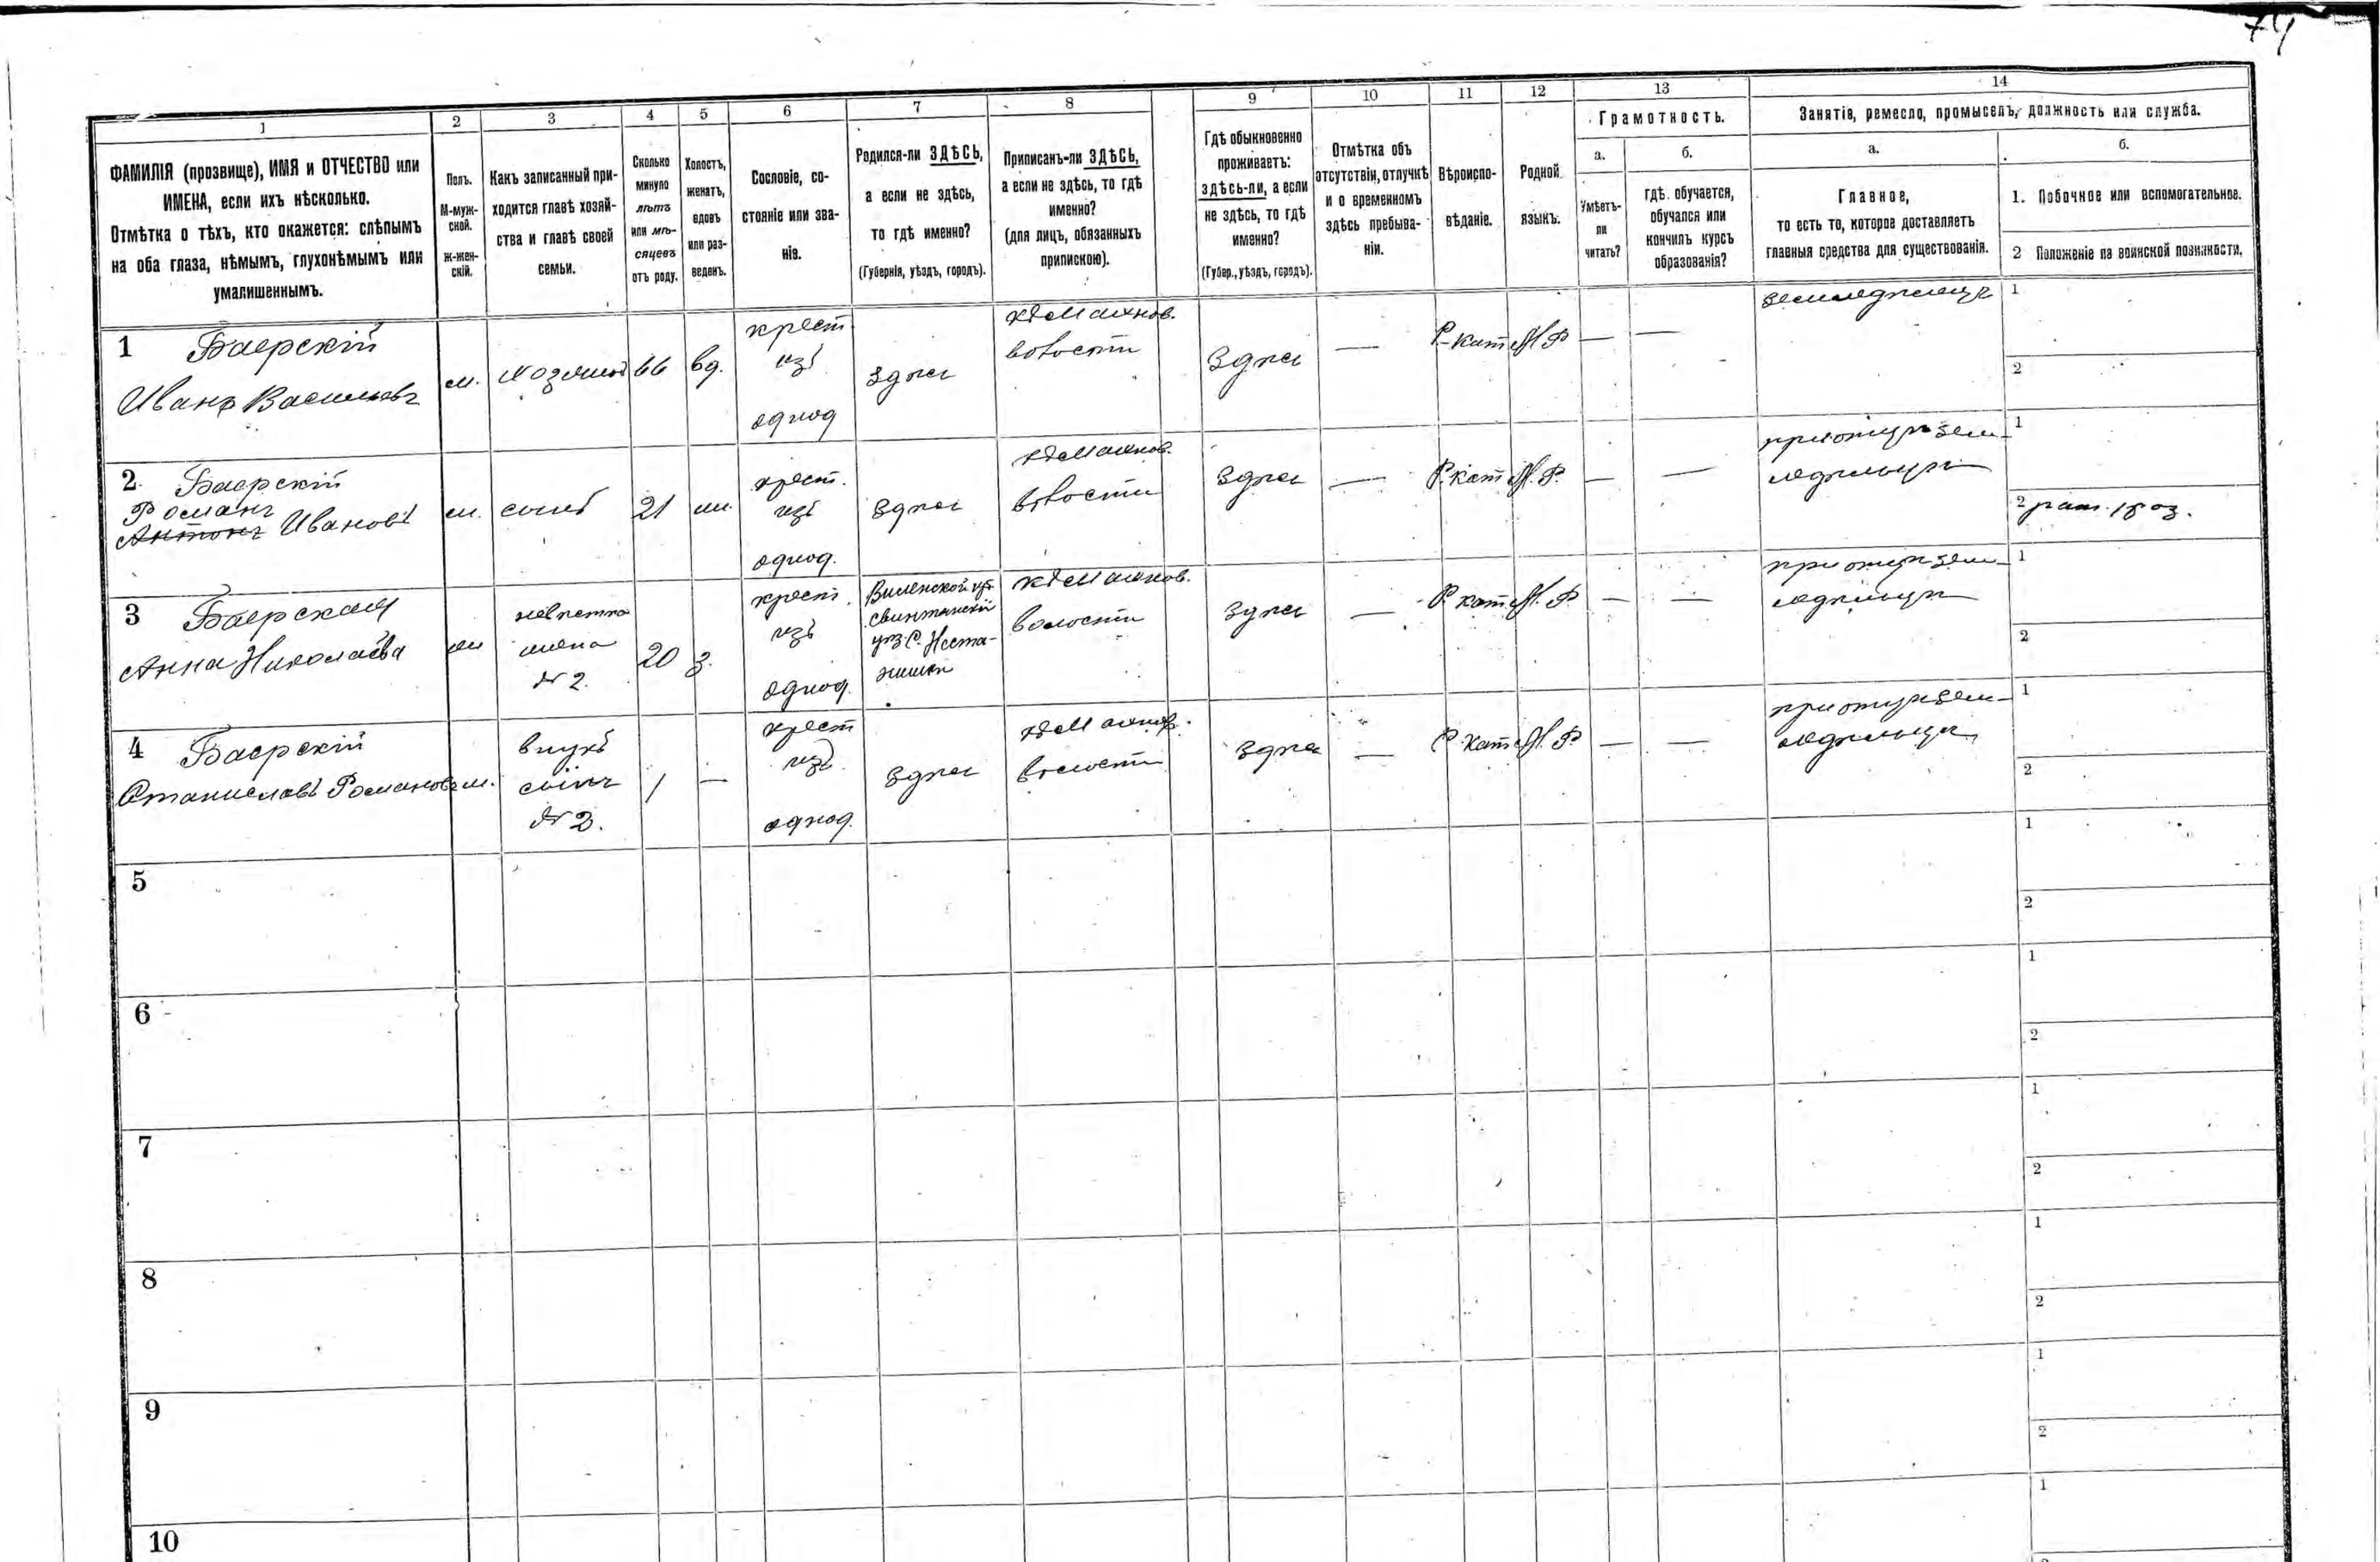 74
1 2 3 4 5 6 7 8 9 10 11 12 13 14
ФАМИЛІЯ (прозвище), ИМЯ и ОТЧЕСТВО или
ИМЕНА, если ихъ нѣсколько.
Отмѣтка о тѣхъ, кто окажется: слѣпымъ
на оба глаза, нѣмымъ, глухонѣмымъ или
умалишеннымъ.
Полъ.
М-муж-
ской.
ж-жен-
скій.
Какъ записанный при-
ходится главѣ хозяй-
ства и главѣ своей
семьи.
Сколько
минуло
лѣтъ
или мѣ-
сяцевъ
отъ роду.
Холостъ,
женатъ,
вдовъ
или раз-
веденъ.
Сословіе, со-
стояніе или зва-
ніе.
Родился-ли ЗДѢСЬ,
а если не здѣсь,
то гдѣ именно?
(Губернія, уѣздъ, городъ).
Приписанъ-ли ЗДѢСЬ,
а если не здѣсь, то гдѣ
именно?
(для лицъ, обязанныхъ
припискою).
Гдѣ обыкновенно
проживаетъ:
здѣсь-ли, а если
не здѣсь, то гдѣ
именно?
(Губер., уѣздъ, городъ).
Отмѣтка объ
отсутствіи, отлучкѣ
и о временномъ
здѣсь пребыва-
ніи.
Вѣроиспо-
вѣданіе.
Родной
языкъ.
Грамотность.
а.
Умѣетъ-
ли
читать?
б.
гдѣ обучается,
обучался или
кончилъ курсъ
образованія?
Занятіе, ремесло, промыселъ, должность или служба.
а.
Главное,
то есть то, которое доставляетъ
главныя средства для существованія.
б.
1. Побочное или вспомогательное.
2 Положеніе па воинской повинности.
1 Баерскій
Иванъ Васильевъ
м.
хозяинъ
66
вд.
крест
изъ
однод
здѣсь
волости
Здѣсь
—
Р-кат
—
—
земледѣлецъ
1
2
2 Баерскій
Романъ
Антонъ Ивановъ
м.
сынъ
21
жн.
крест.
изъ
однод.
здѣсь
волости
Здѣсь
—
Р.кат
—
—
при отцѣ зем-
ледѣльцѣ
1
2
3 Баерская
Анна Николаева
невѣстка
жена
№ 2.
20
з.
крест.
изъ
однод.
Виленской губ.
свинтянскій
уѣз.
волости
Здѣсь
—
Р. кат
—
—
при отцѣ зем-
ледѣльцѣ
1
2
4 Баерскій
Станиславъ Романовъ
м.
внукъ
сынъ
№ 2.
1
—
крест
изъ
однод.
здѣсь
волости
Здѣсь
—
Р. кат
—
—
при отцѣ зем-
ледѣльцѣ
1
2
5
1
2
6
1
2
7
1
2
8
1
2
9
1
2
10
1